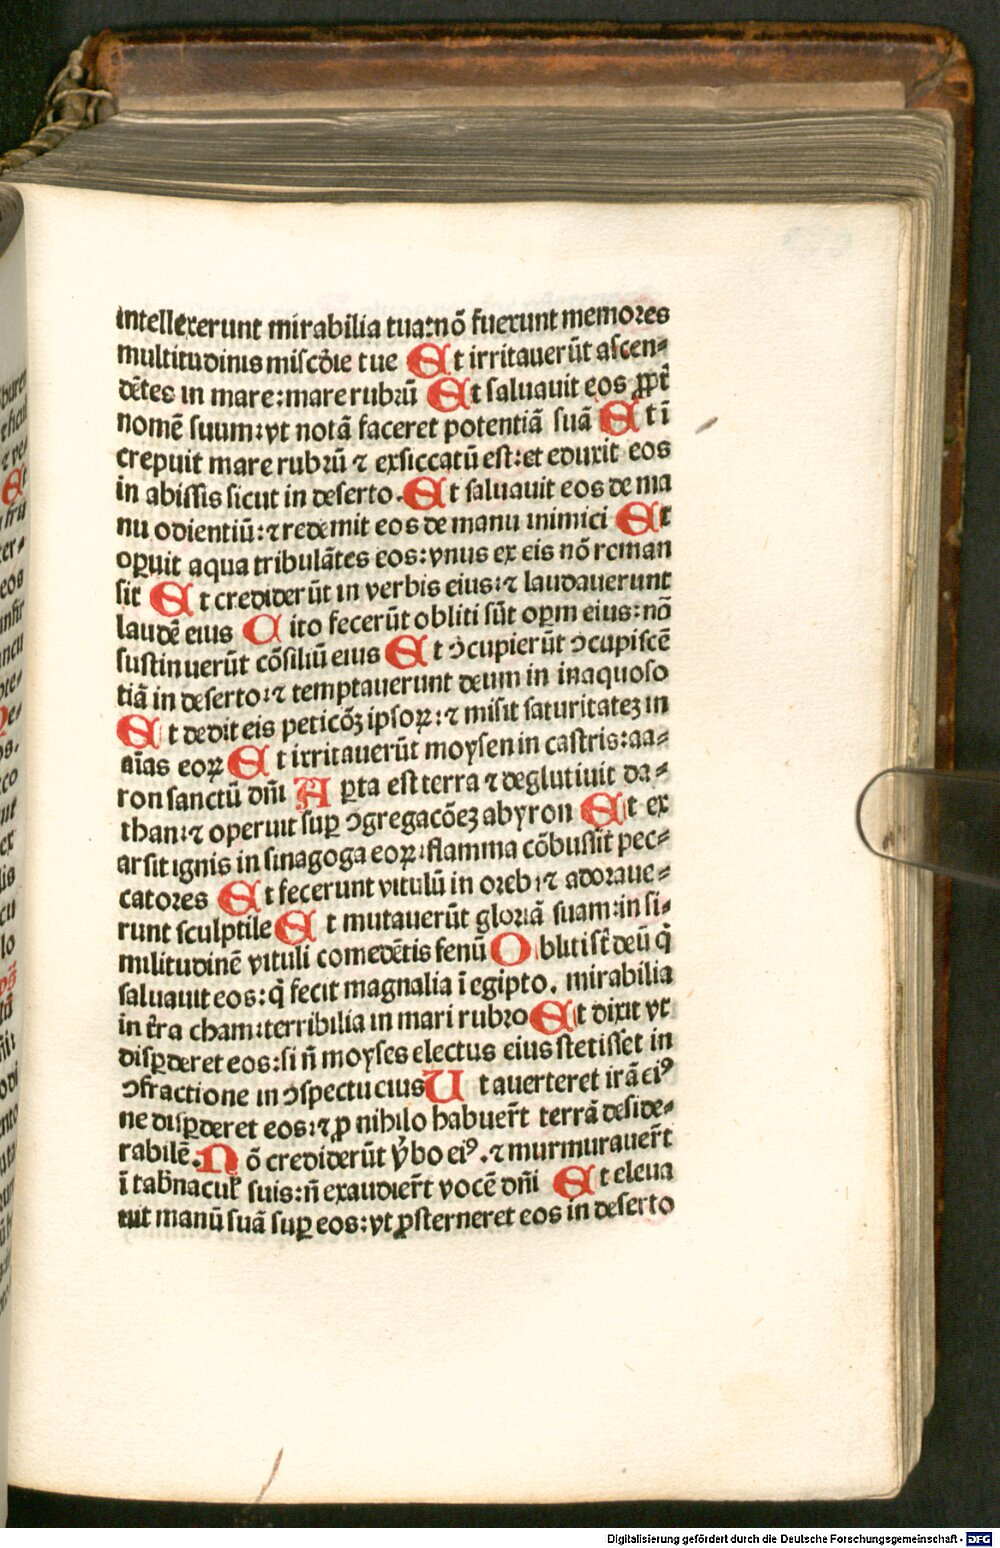 intellexerunt mirabilia tua:nō fuerunt memores
multitudinis misc̄die tue Et irritauerūt ascen⸗
dētes in mare:mare rubrū Et saluauit eos ꝓpt̄
nomē suum:vt notā faceret potentiā suā Et ī
crepuit mare rubrū ⁊ exsiccatū est:et eduxit eos
in abissis sicut in deserto. Et saluauit eos de ma
nu odientiū:⁊ redemit eos de manu inimici Et
oꝑuit aqua tribulātes eos:vnus ex eis nō reman
sit Et crediderūt in verbis eius:⁊ laudauerunt
laudē eius Cito fecerūt obliti sūt oꝑm eius:nō
sustinuerūt cōsiliū eius Et ꝯcupierūt ꝯcupiscē
tiā in deserto:⁊ temptauerunt deum in inaquoso
Et dedit eis peticōꝫ ipsoꝝ:⁊ misit saturitateꝫ in
aīas eoꝝ Et irritauerūt moysen in castris:aa⸗
ron sanctū dn̄i Aꝑta est terra ⁊ deglutiuit da⸗
than:⁊ operuit suꝑ ꝯgregacōeꝫ abyron Et ex
arsit ignis in sinagoga eoꝝ:flamma cōbussit pec⸗
catores Et fecerunt vitulū in oreb:⁊ adoraue⸗
runt sculptile Et mutauerūt gloriā suam:in si⸗
militudinē vituli comedētis fenū Obliti sūt deū q̄
saluauit eos:q̄ fecit magnalia ī egipto. mirabilia
in t̄ra cham:terribilia in mari rubro Et dixit vt
disꝑderet eos:si n̄ moyses electus eius stetisset in
ꝯfractione in ꝯspectu eius Ut auerteret irā eiꝰ
ne disꝑderet eos:⁊ ꝓ nihilo habuer̄t terrā deside⸗
rabilē. Nō crediderūt v̄bo eiꝰ.⁊ murmurauer̄t
ī tab̄nacuł suis:n̄ exaudier̄t vocē dn̄i Et eleua
uit manū suā suꝑ eos:vt ꝓsterneret eos in deserto
Digitalisierung gefördert durch die Deutsche Forschungsgemeinschaft - DFG